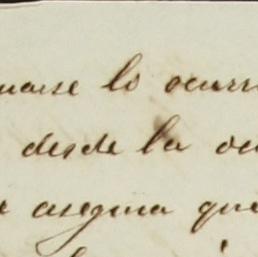 lo ocurri
desde la oc
asegura que